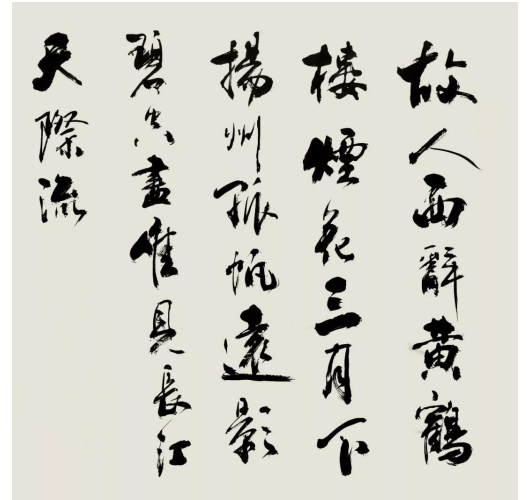 故人西辭黄鶴
樓煙花三月下
揚州孤帆遠影
碧空盡唯見長江
天際流